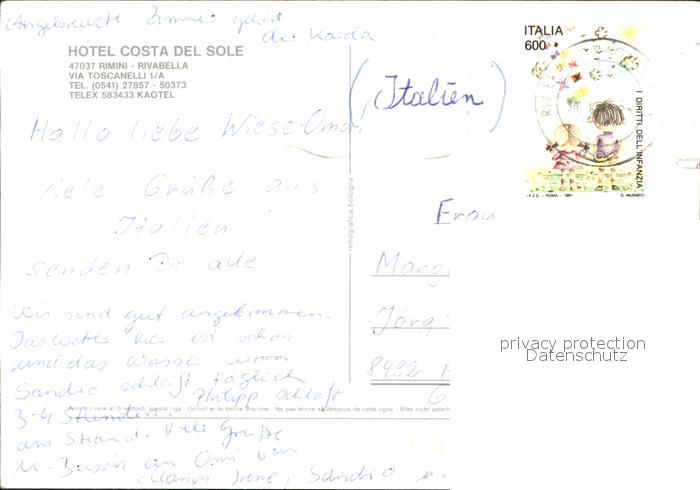 (Angekreuzte Zimmer gehört
HOTEL COSTA DEL SOLE
47037 RIMINI - RIVABELLA
VIA TOSCANELLI 1/A
TEL. (0541) 27857 - 50373
TELEX 583433 KAOTEL
(Italien)
ITALIA
600
I DIRITTI DELL'INFANZIA
I.P.Z.S. - ROMA - 1991
G. MUSMEO
Hallo liebe Wiese-Oma,
viele Grüße aus
Italien
senden Dir alle
Wir sind gut angekommen.
Das Wetter hier ist schön
und das Wasser warm.
Sandra schläft täglich
3-4 Stunden. Philipp schläft
am Strand. Viele Grüße
u. Bussi an Omi von
Irene, Sandra u.
renografica bologna
Non scrivere al di sotto di questa riga - Do not write below this line - Ne pas écrire au dessous de cette ligne - Bitte nicht unterh
Frau
Marg
Jörg-
8492
privacy protection
Datenschutz